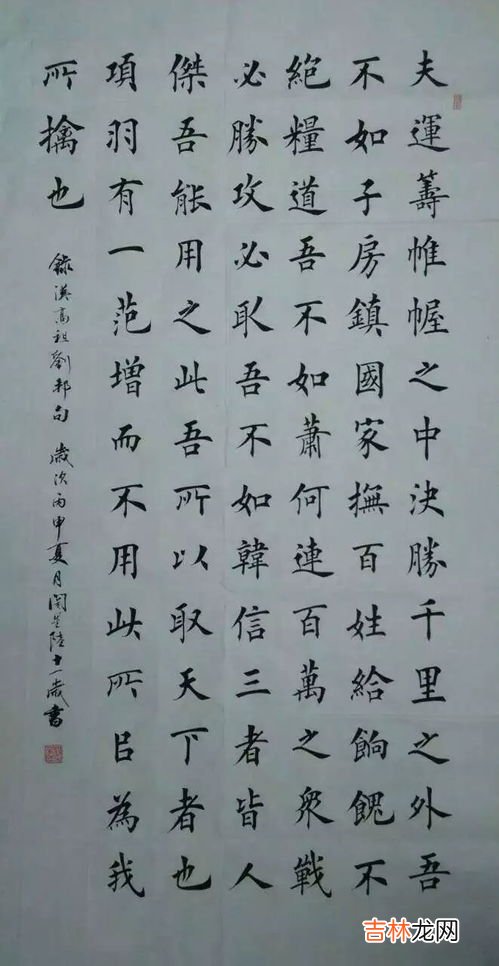 夫運籌帷幄之中決勝千里之外吾
不如子房鎮國家撫百姓給餉餽不
絕糧道吾不如蕭何連百萬之衆戰
必勝攻必取吾不如韓信三者皆人
傑吾能用之此吾所以取天下者也
項羽有一范增而不用此所㠯為我
所擒也
錄漢高祖劉邦句 歲次丙申夏月陸十一歲書
吉林龙网